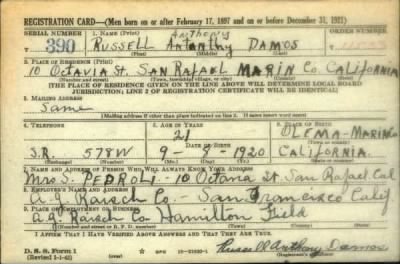 REGISTRATION CARD—(Men born on or after February 17, 1897 and on or before December 31, 1921)
SERIAL NUMBER 1. NAME (Print) ORDER NUMBER
Anthony
390 RUSSELL Antanthy DAMOS
(First) (Middle) (Last)
2. PLACE OF RESIDENCE (Print)
10 OCTAVIA St. SAN RAFAEL MARIN Co. CALIFORNIA
(Number and street) (Town, township, village, or city) (County) (State)
[THE PLACE OF RESIDENCE GIVEN ON THE LINE ABOVE WILL DETERMINE LOCAL BOARD
JURISDICTION; LINE 2 OF REGISTRATION CERTIFICATE WILL BE IDENTICAL]
3. MAILING ADDRESS
Same
[Mailing address if other than place indicated on line 2. If same insert word same]
4. TELEPHONE 5. AGE IN YEARS 6. PLACE OF BIRTH
21 OLEMA-MARIN Co
DATE OF BIRTH
S.R. 578W 9 - 1920 CALIFORNIA
(Exchange) (Number) (Mo.) (Day) (Yr.) (State or country)
7. NAME AND ADDRESS OF PERSON WHO WILL ALWAYS KNOW YOUR ADDRESS
MRS S. PEDROLI - 10 Octavia St. San Rafael Cal
8. EMPLOYER'S NAME AND ADDRESS
A.G. Raisch Co - San Francisco Calif
9. PLACE OF EMPLOYMENT OR BUSINESS
A.G. Raisch Co Hamilton Field
(Number and street or R. F. D. number) (Town) (County) (State)
I AFFIRM THAT I HAVE VERIFIED ABOVE ANSWERS AND THAT THEY ARE TRUE.
D. S. S. Form 1
(Revised 1-1-42) (over) Russell Anthony Damos
(Registrant's signature)